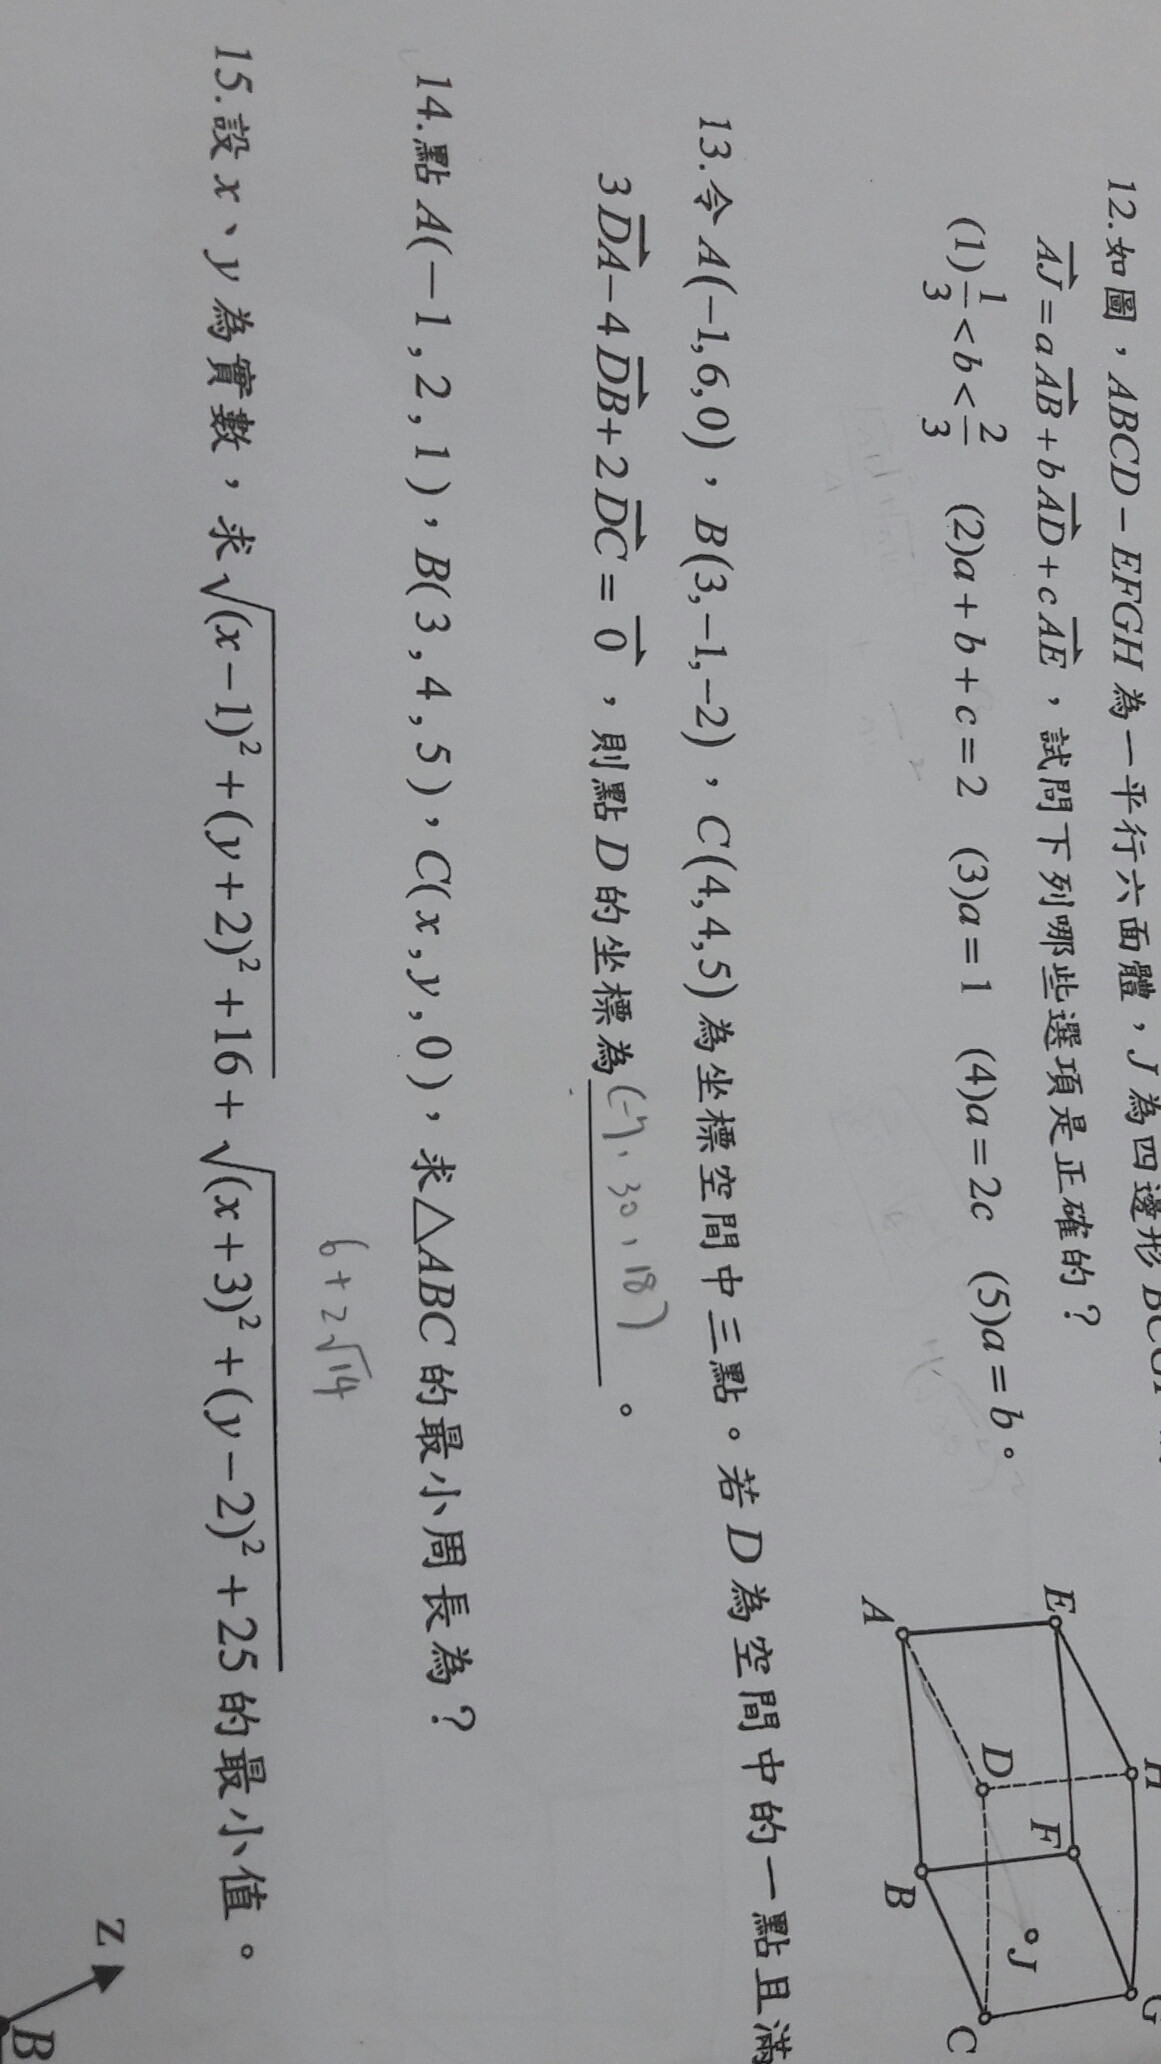 12.如圖,ABCD-EFGH 為一平行六面體,J 為四邊形
AJ=aAB+bAD+cAE,試問下列哪些選項是正確的?
(1)1/3<b<2/3 (2)a+b+c=2 (3)a=1 (4)a=2c (5)a=b。
E
H
A
D
F
G
B
J
C
13.令 A(-1,6,0),B(3,-1,-2),C(4,4,5)為坐標空間中三點。若 D 為空間中的一點且滿
3DA-4DB+2DC=0,則點 D 的坐標為(-7,30,18)。
14.點 A(-1,2,1)、B(3,4,5)、C(x,y,0),求△ABC 的最小周長為?
6+2√14
15.設 x、y 為實數,求√(x-1)²+(y+2)²+16+√(x+3)²+(y-2)²+25的最小值。
Z
B